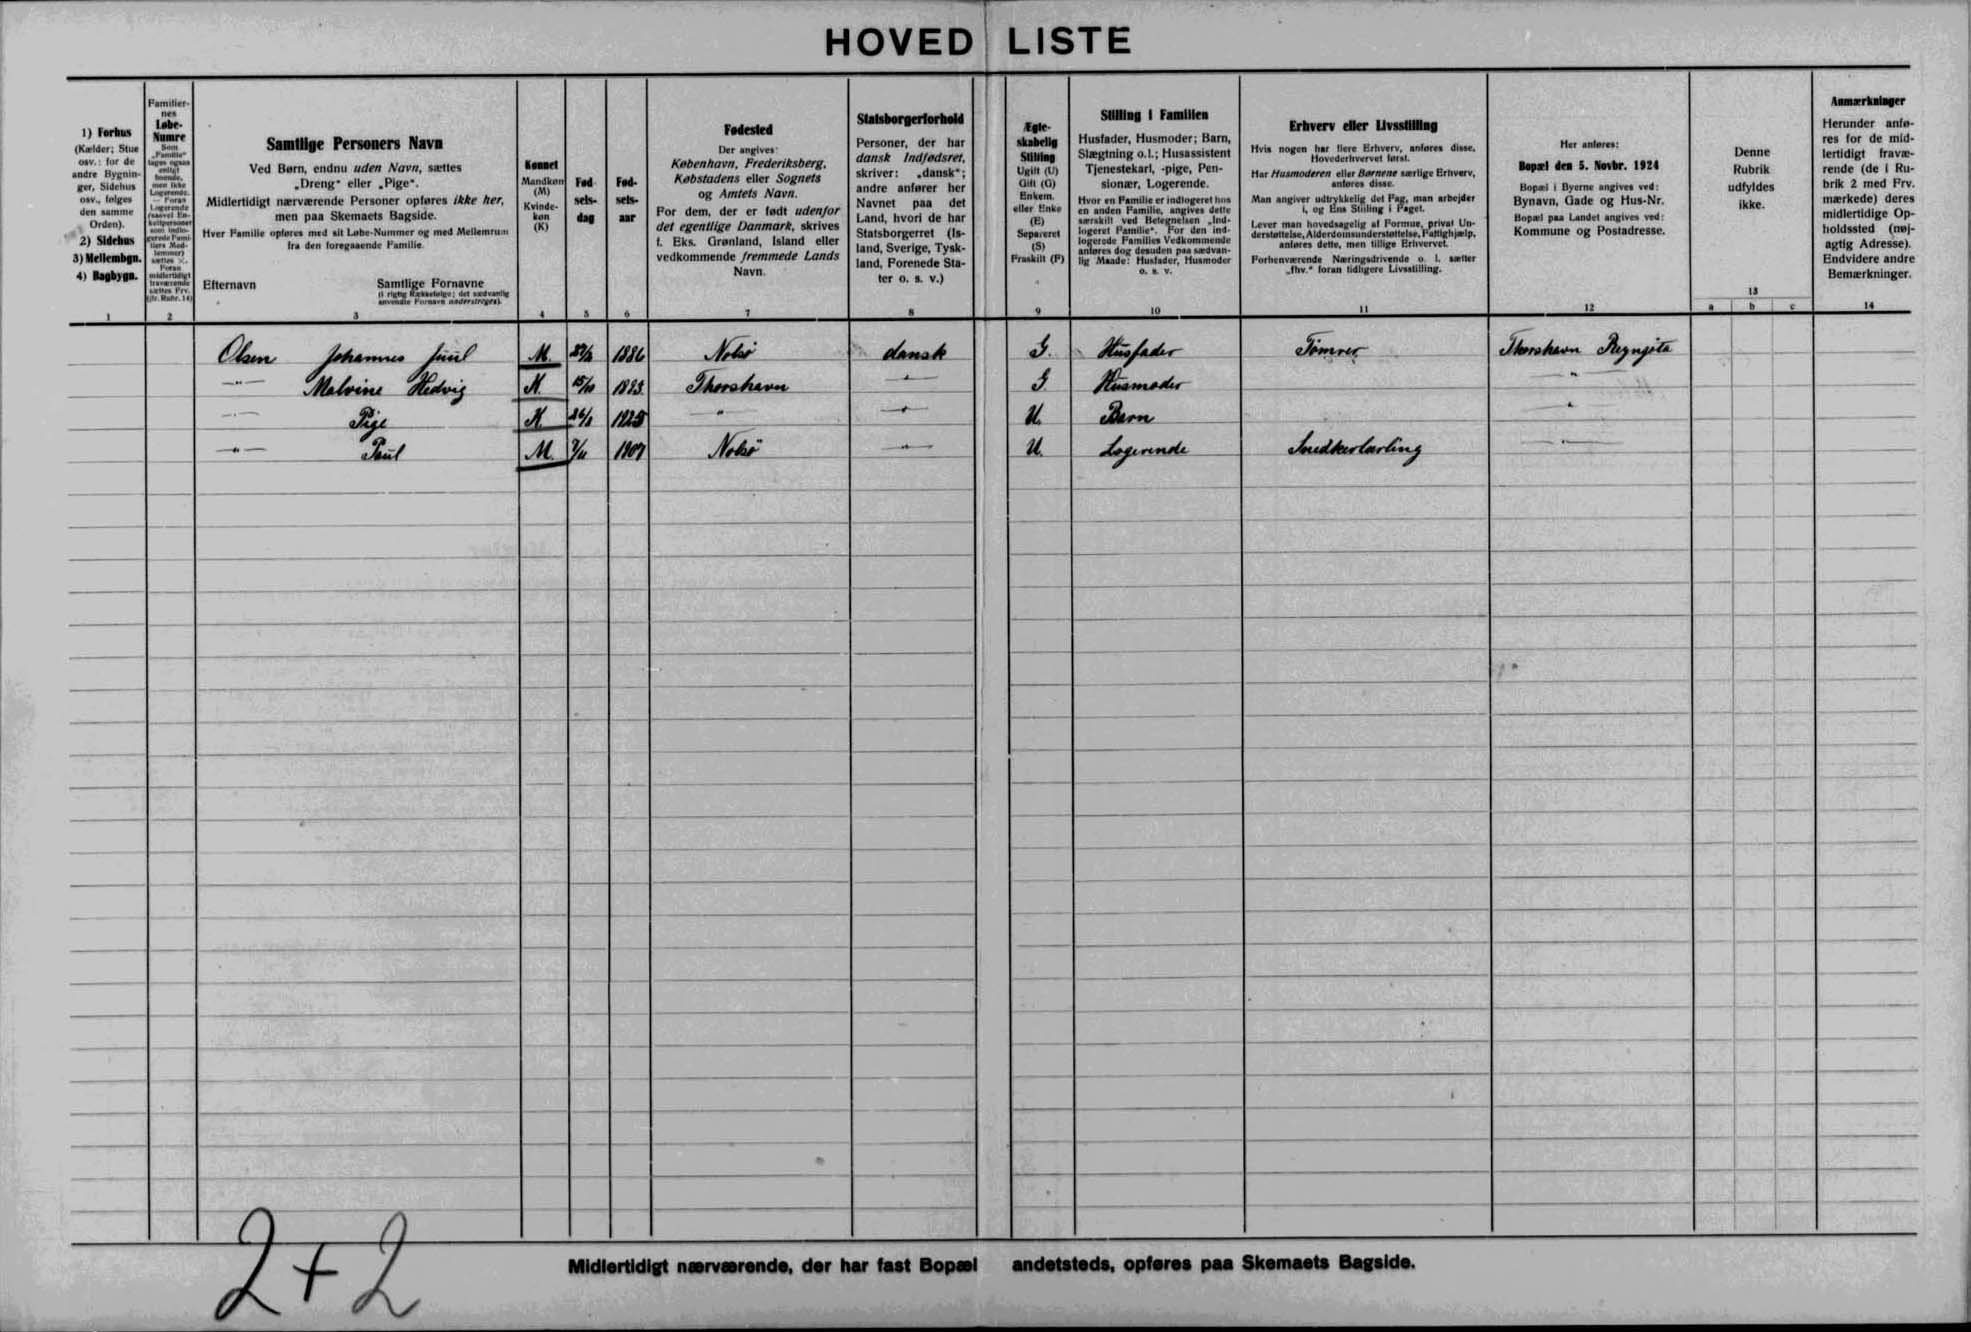 HOVED LISTE
1) Forhus
(Kælder; Stue
osv.: for de
andre Bygnin-
ger, Sidehus
osv., følges
den samme
Orden).
2) Sidehus
3) Mellembgn.
4) Bagbygn.
1
Familier-
nes
Løbe-
Numre
2
Samtlige Personers Navn
Ved Børn, endnu uden Navn, sættes
„Dreng“ eller „Pige“.
Midlertidigt nærværende Personer opføres ikke her,
men paa Skemaets Bagside.
Hver Familie opføres med sit Løbe-Nummer og med Mellemrum
fra den foregaaende Familie.
Efternavn Samtlige Fornavne
(i rigtig Rækkefølge; det sædvanlig
anvendte Fornavn understreges).
3
Kønnet
Mandkøn
(M)
Kvinde-
køn
(K)
4
Fød-
sels-
dag
5
Fød-
sels-
aar
6
Fødested
Der angives:
København, Frederiksberg,
Købstadens eller Sognets
og Amtets Navn.
For dem, der er født udenfor
det egentlige Danmark, skrives
f. Eks. Grønland, Island eller
vedkommende fremmede Lands
Navn.
7
Statsborgerforhold
Personer, der har
dansk Indfødsret,
skriver: „dansk“;
andre anfører her
Navnet paa det
Land, hvori de har
Statsborgerret (Is-
land, Sverige, Tysk-
land, Forenede Sta-
ter o. s. v.)
8
Ægte-
skabelig
Stilling
Ugift (U)
Gift (G)
Enkem.
eller Enke
(E)
Separeret
(S)
Fraskilt (F)
9
Stilling i Familien
Husfader, Husmoder; Barn,
Slægtning o.l.; Husassistent
Tjenestekarl, -pige, Pen-
sionær, Logerende.
Hvor en Familie er indlogeret hos
en anden Familie, angives dette
særskilt ved Betegnelsen „Ind-
logeret Familie“. For den ind-
logerede Families Vedkommende
anføres dog desuden paa sædvan-
lig Maade: Husfader, Husmoder
o. s. v.
10
Erhverv eller Livsstilling
Hvis nogen har flere Erhverv, anføres disse,
Hovederhvervet først.
Har Husmoderen eller Børnene særlige Erhverv,
anføres disse.
Man angiver udtrykkelig det Fag, man arbejder
i, og Ens Stilling i Faget.
Lever man hovedsagelig af Formue, privat Un-
derstøttelse, Alderdomsunderstøttelse, Fattighjælp,
anføres dette, men tillige Erhvervet.
Forhenværende Næringsdrivende o. l. sætter
„fhv.“ foran tidligere Livsstilling.
11
Her anføres:
Bopæl den 5. Novbr. 1924
Bopæl i Byerne angives ved:
Bynavn, Gade og Hus-Nr.
Bopæl paa Landet angives ved:
Kommune og Postadresse.
12
Denne
Rubrik
udfyldes
ikke.
13
a b c
Anmærkninger
Herunder anfø-
res for de mid-
lertidigt fravæ-
rende (de i Ru-
brik 2 med Frv.
mærkede) deres
midlertidige Op-
holdssted (nøj-
agtig Adresse).
Endvidere andre
Bemærkninger.
14
Olsen Johannes Juul M. 1886 Nolsö dansk G. Husfader Tømrer Thorshavn Reyngöta
" Malvine Hedvig K. Thorshavn " G Husmoder "
" Pige K. " " U. Barn "
" Paul M. 1907 Nolsö " U. Logerende Snedkerlærling "
2+2
Midlertidigt nærværende, der har fast Bopæl andetsteds, opføres paa Skemaets Bagside.